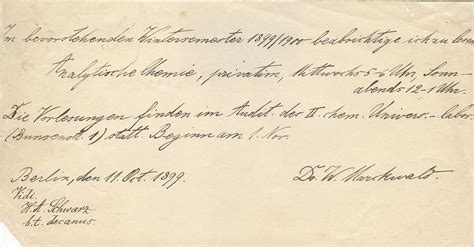 In bevorstehenden Wintersemester 1899/1900 beabsichtige ich zu lesen
Analytische Chemie, privatim, Mittwochs 5-6 Uhr, Sonn-
abends 12-1 Uhr.
Die Vorlesungen finden im Audit. des II. chem. Univers.-labor.
(Bunsenstr. 1) statt. Beginn am 1. Nov.
Berlin, den 11. Oct. 1899. Dr. W. Marckwald.
Vidi.
H. A. Schwarz
h. t. decanus.